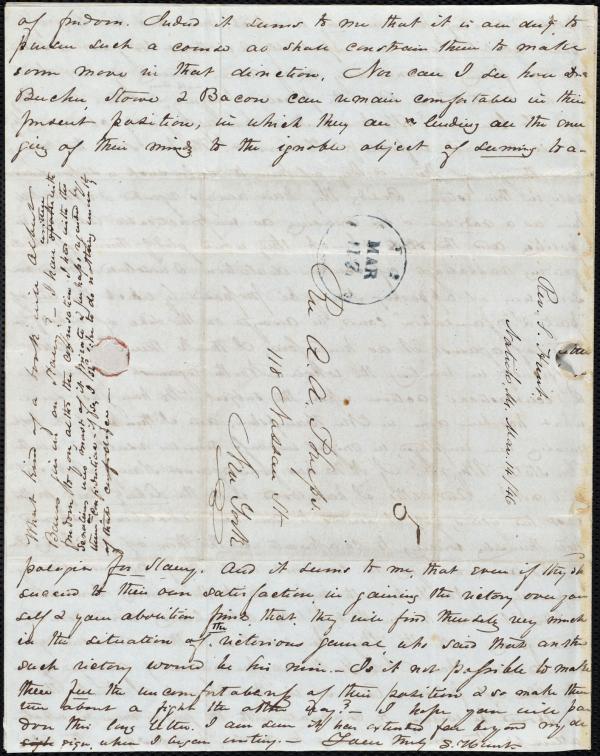 of freedom. Indeed it seems to me that it is our duty to
pursue such a course as shall constrain them to make
some move in that direction. Nor can I see how Drs
Beecher, Stowe & Bacon can remain comfortable in their
present position, in which they are lending all the ener
gies of their minds to the ignoble object of seeming to a-
pologize for Slavery. And it seems to me, that even if they sh
succeed to their own satisfaction, in gaining the victory over your
self & your abolition friends, that they will find themselves very much
in the situation of the victorious general, who said that another
such victory would be his ruin. Is it not possible to make
them feel the uncomfortableness of their position & so make them
turn about & fight the other way? — I hope you will par
don this long letter. I am sure it has extended far beyond my de
sign, when I began writing — Yours truly S. Hunt
What kind of a book will Albert
Barnes give us on Slavery? — I have written
of that confidence —
MAR
Rev A. A. Phelps.
118 Nassau St
New York
5
Rev. S. Hunt
Natick, Ms, Mar. 14/46